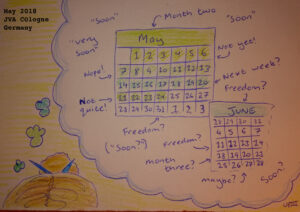 May 2018
JVA Cologne
Germany
"Soon"
Month two
"Soon"
"very
Soon"
May
Not yet!
1 2 3 4 5 6
Nope!
7 8 9 10 11 12 13
Next week?
14 15 16 17 18 19 20
Not
quite!
21 22 23 24 25 26 27
Freedom?
28 29 30 31 1 2 3
Freedom?
("Soon?")
JUNE
4 5 6 7
Freedom?
month
three?
maybe?
Soon?